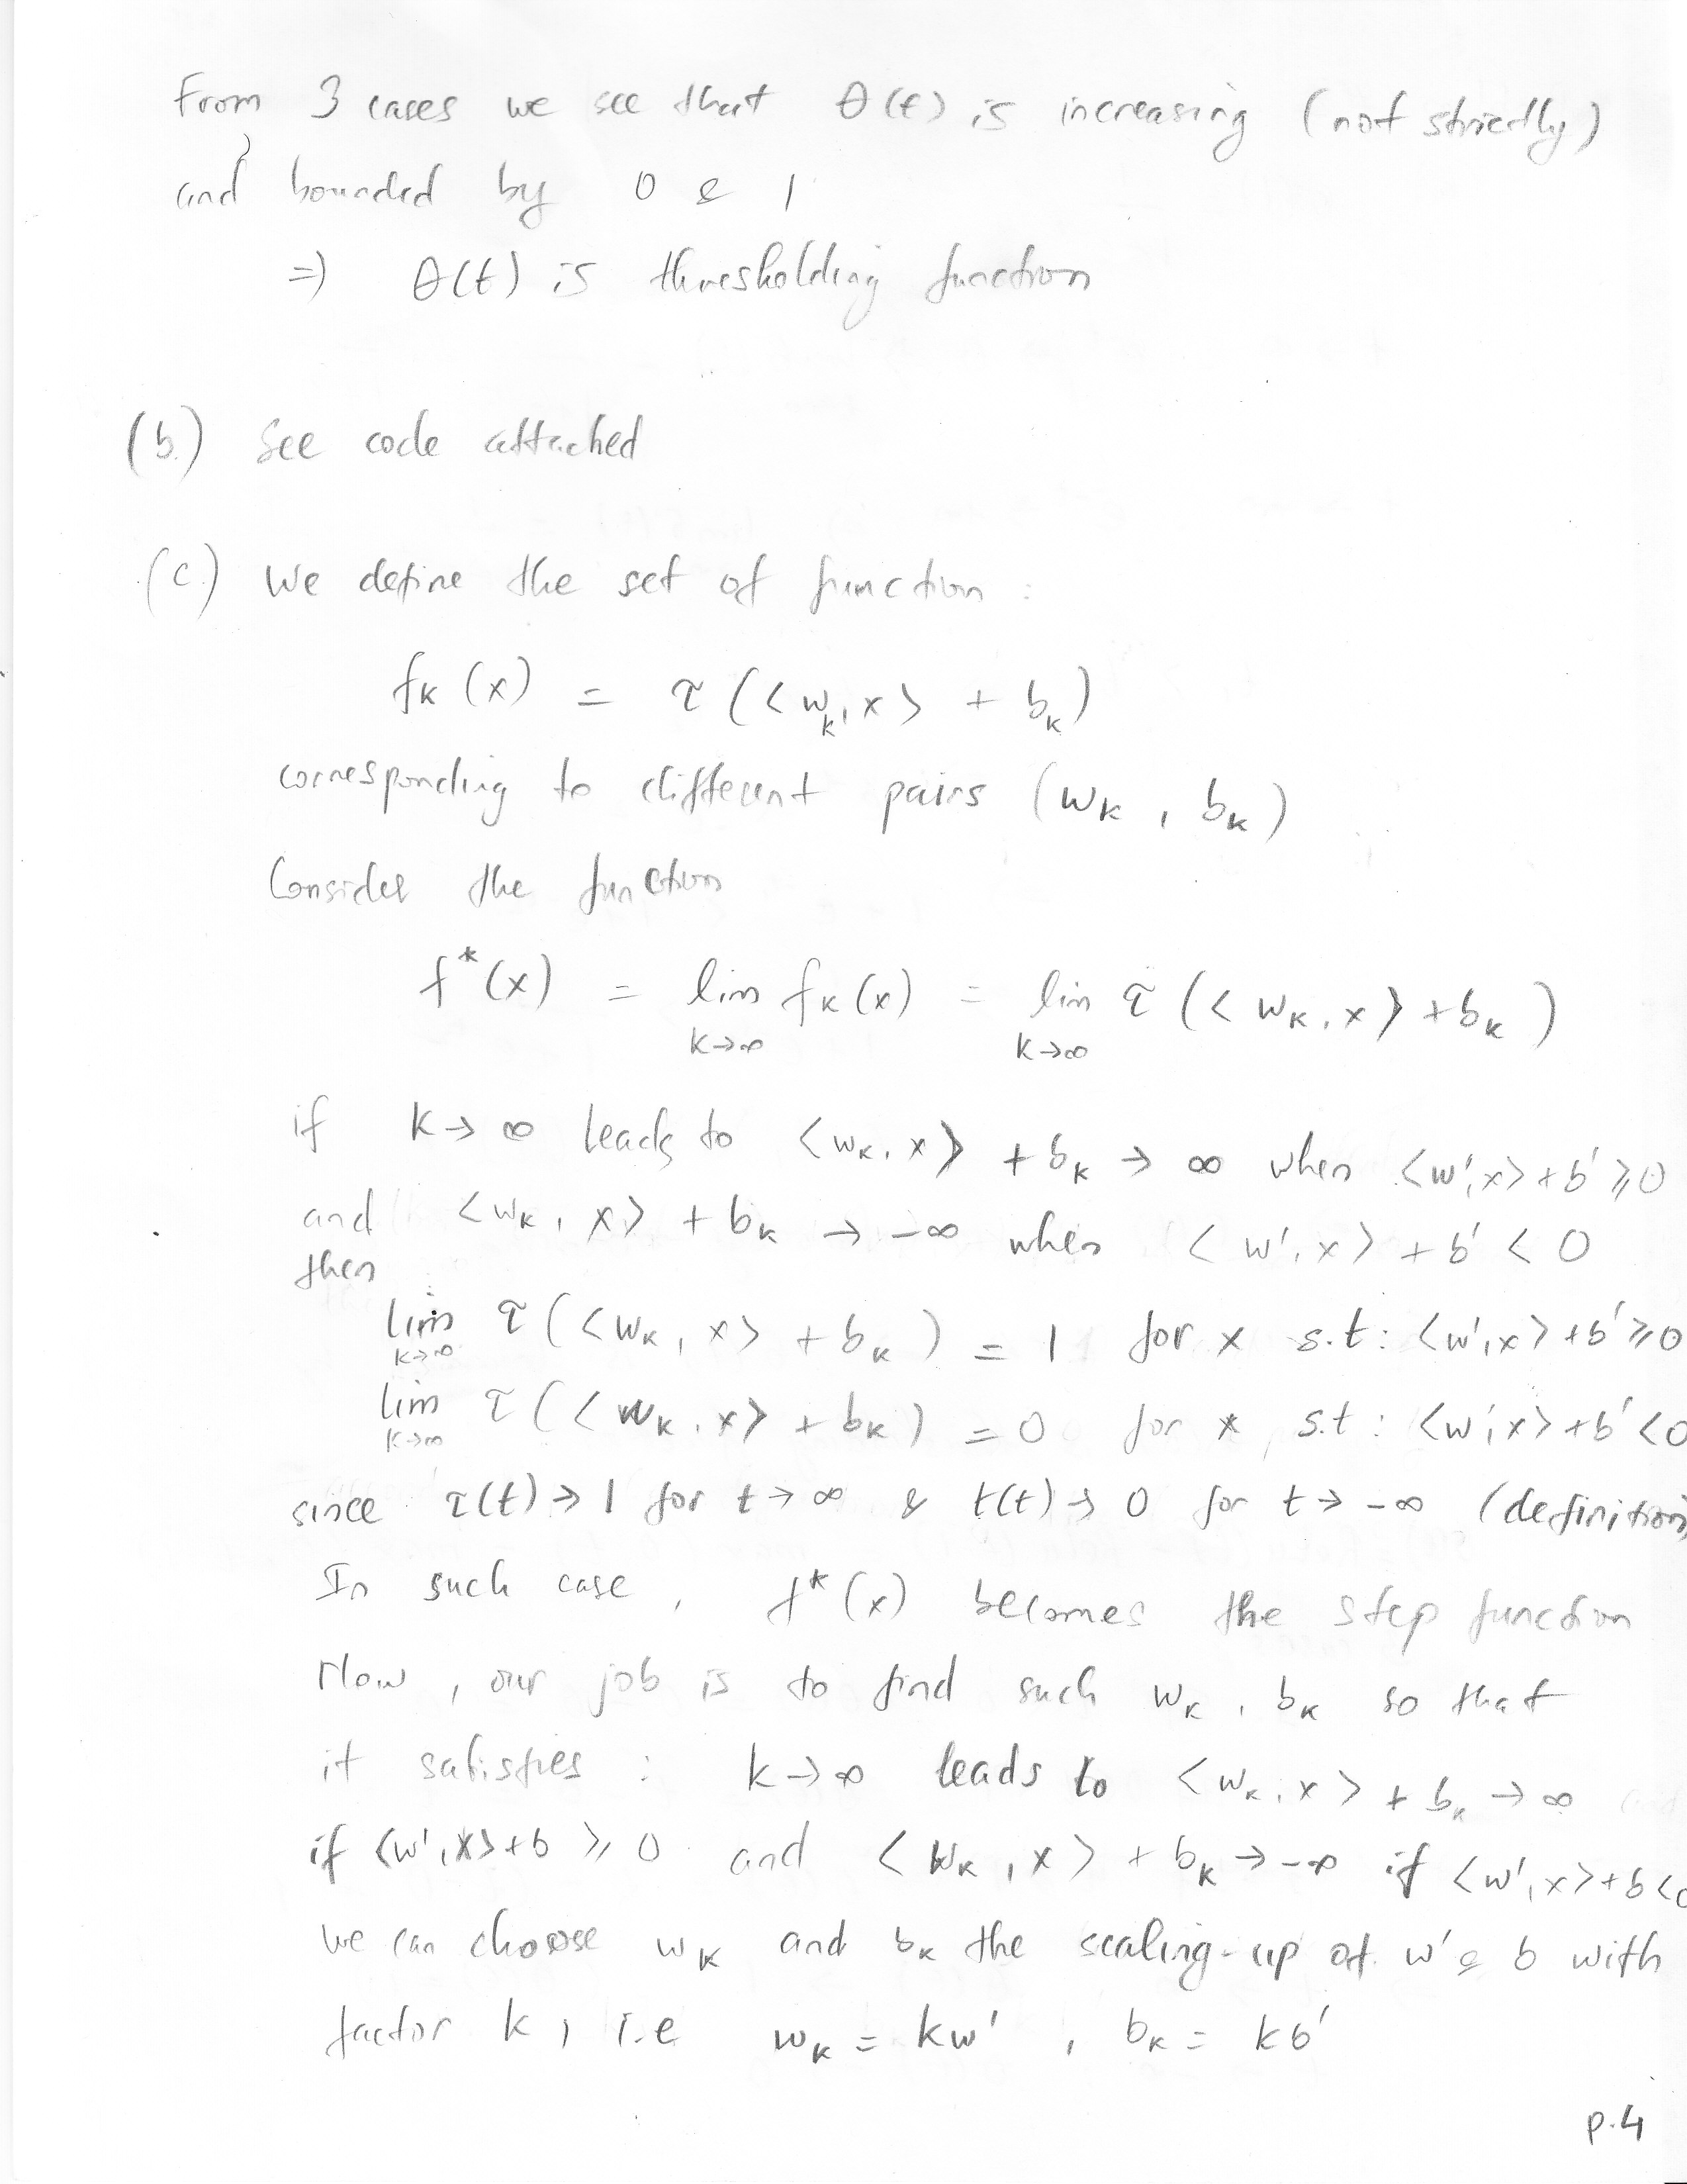 From 3 cases we see that θ(t) is increasing (not strictly)
and bounded by 0 & 1
=> θ(t) is thresholding function
(b.) See code attached
(c.) We define the set of function :
fₖ(x) = τ(<wₖ, x> + bₖ)
corresponding to different pairs (wₖ, bₖ)
Consider the function
f*(x) = lim fₖ(x) = lim τ(<wₖ, x> + bₖ)
k→∞ k→∞
if k→∞ leads to <wₖ, x> + bₖ → ∞ when <w', x> + b' ≥ 0
and <wₖ, x> + bₖ → -∞ when <w', x> + b' < 0
then
lim τ(<wₖ, x> + bₖ) = 1 for x s.t: <w', x> + b' ≥ 0
k→∞
lim τ(<wₖ, x> + bₖ) = 0 for x, s.t : <w', x> + b' < 0
k→∞
since τ(t) → 1 for t → ∞ & t(t) → 0 for t → -∞ (definition)
In such case, f*(x) becomes the step function
Now, our job is to find such wₖ, bₖ so that
it satisfies : k→∞ leads to <wₖ, x> + bₖ → ∞ and
if <w', x> + b ≥ 0 and <wₖ, x> + bₖ → -∞ if <w', x> + b < 0
we can choose wₖ and bₖ the scaling-up of w' & b with
factor k, i.e wₖ = kw' , bₖ = kb'
p.4